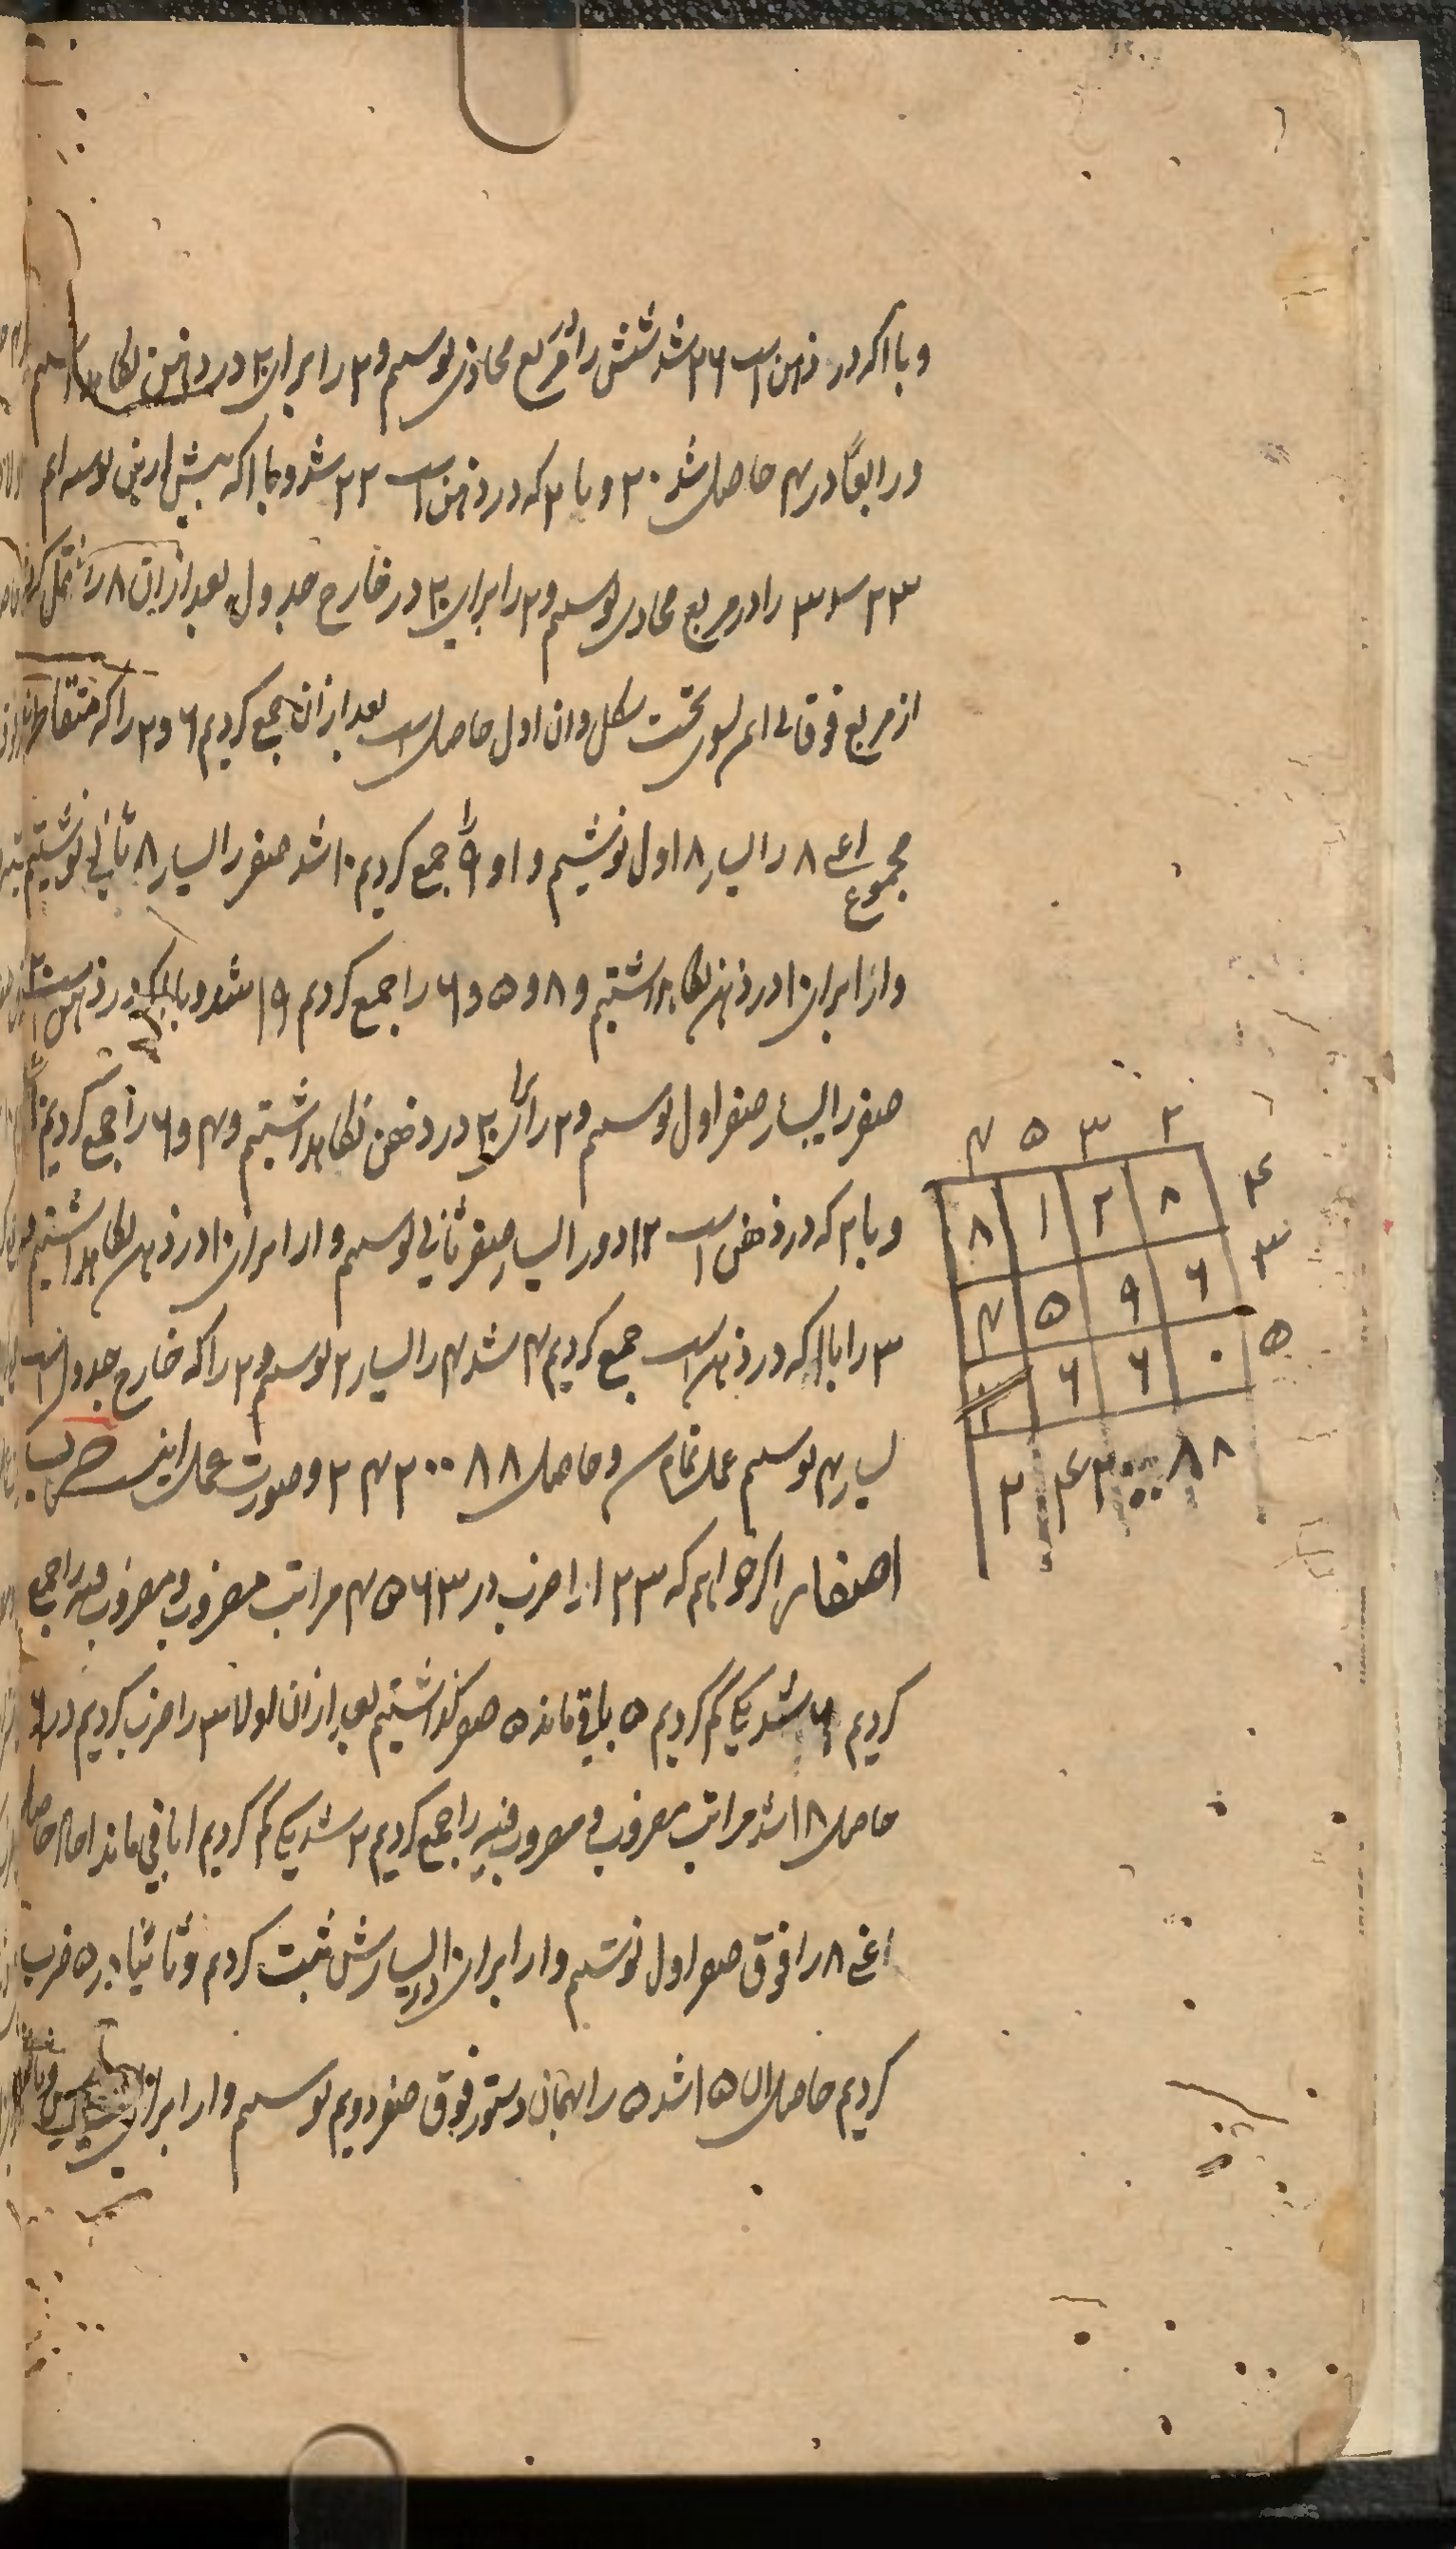 و با ا که در ذهن است ۲۶ شد شش را در مربع محاذی نویسیم و ۲ را برای ۲۰ در ذهن نگاه داریم
و رابعا در ۴ حاصل شد ۲۰ و با ۲ که در ذهن است ۲۲ شد و با ا که پیش ازین نوشته ایم
۲۳ پس ۳ را در مربع محاذی نویسیم و ۲ را برای ۲۰ در خارج جدول بعد ازان ۸ را نقل کردیم
از مربع فوقانی ایمن بسوی تحت شکل و ان اول حاصل است بعد ازان جمع کردیم ۶ و ۲ را که متقاطر اند
مجموع اعنی ۸ را بیسار ۸ اول نوشتیم و ا و ۹ را جمع کردیم ۱۰ شد صفر را بیسار ۸ ثانی نوشتیم
و ا را برای ۱۰ در ذهن نگاه داشتیم و ۸ و ۵ و ۶ را جمع کردیم ۱۹ شد و با ا که در ذهن است ۲۰
صفر را بیسار صفر اول نویسیم و ۲ را برای ۲۰ در ذهن نگاه داشتیم و ۴ و ۶ را جمع کردیم ۱۰
و با ۲ که در ذهن است ۱۲ دو را بیسار صفر ثانی نویسیم و ا را برای ۱۰ در ذهن نگاه داشتیم
۳ را با ا که در ذهن است جمع کردیم ۴ شد ۴ را بیسار ۲ نویسیم و ۲ را که خارج جدول است
بیسار ۴ نویسیم عمل تمام و حاصل ۲۴۲۰۰۸۸ و صورت عمل اینست ضرب
اصفار اگر خواهیم که ۱۲۳ را ضرب در ۴۵۶۳ مراتب مضروب و مضروب فیه را جمع
کردیم ۶ شد یکی کم کردیم ۵ باقی ماند ۵ صفر گذاشتیم بعد ازان اولا ۳ را ضرب کردیم در ۶
حاصل ۱۸ شد مراتب مضروب و مضروب فیه را جمع کردیم ۲ شد یکی کم کردیم ا باقی ماند احاد حاصل
اعنی ۸ را فوق صفر اول نوشتیم و ا را برای ۱۰ در بیسارش ثبت کردیم و ثانیا در ۵ ضرب
کردیم حاصل ۱۵ شد ۵ را بهمان دستور فوق صفر دویم نویسیم و ا را برای
۴ ۵ ۳ ۲
۸ ۱ ۲ ۸ ۴
۴ ۵ ۹ ۶ ۳
۶ ۶ ۰ ۵
۲ ۴ ۲ ۰ ۰ ۸ ۸